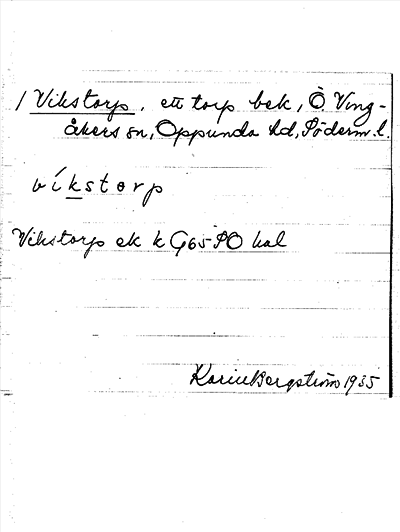 / Vikstorp, ett torp bek, Ö. Ving-
åkers sn, Oppunda hd, Söderm. l.
víkstorp
Vikstorp ek k G65-SO kal
Karin Bergström 1935